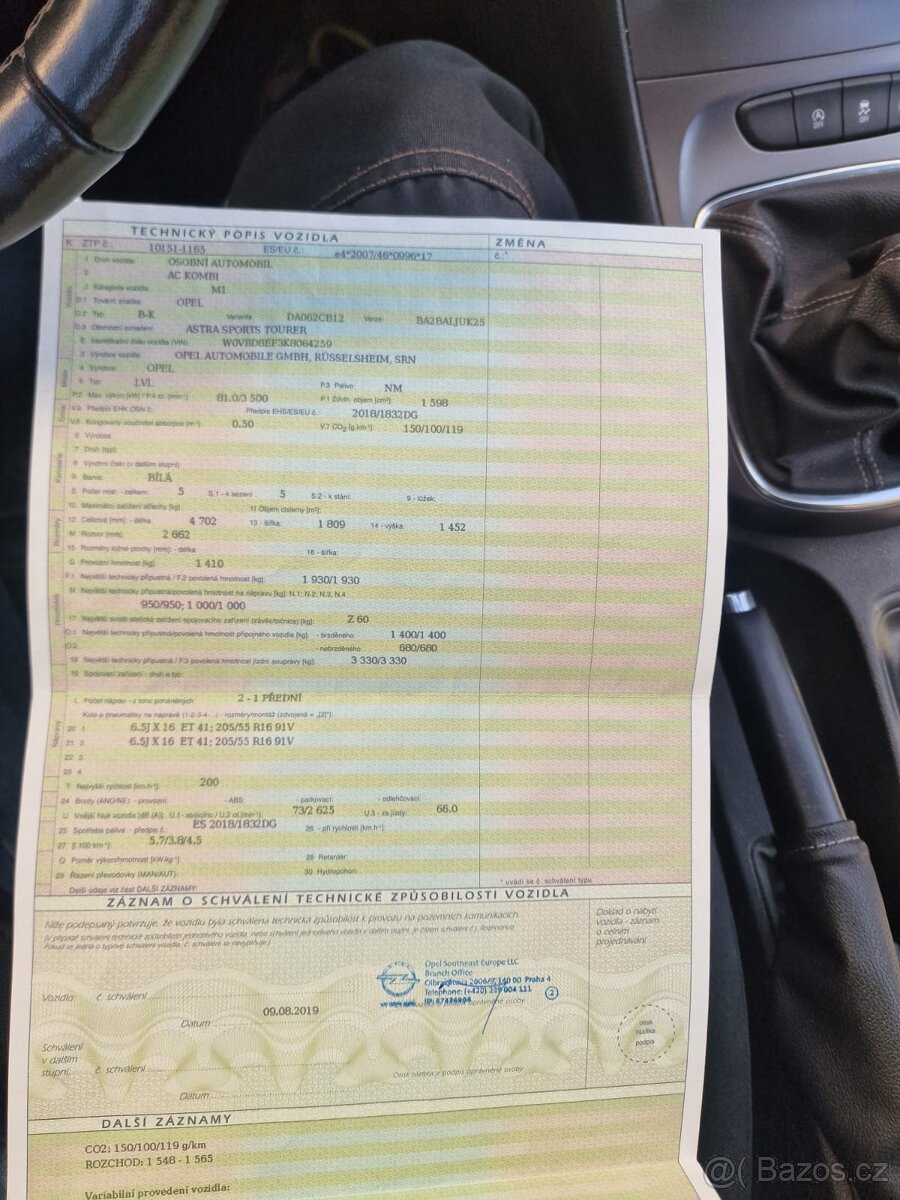 OFF
OFF
TECHNICKÝ POPIS VOZIDLA
ZMĚNA
K ZTP č.: 10151-1165 ES/EU č. e4*2007/46*0996*17 č.:*
1 Druh vozidla: OSOBNÍ AUTOMOBIL
2 AC KOMBI
J Kategorie vozidla: M1
D.1 Tovární značka: OPEL
D.2 Typ: B-K Varianta: DA062CB12 Verze: BA2BALJUK25
D.3 Obchodní označení: ASTRA SPORTS TOURER
E Identifikační číslo vozidla (VIN) W0VBD8EF3K8064259
3 Výrobce vozidla: OPEL AUTOMOBILE GMBH, RÜSSELSHEIM, SRN
4 Výrobce: OPEL
5 Typ: LVL P.3 Palivo: NM
P.2 Max. výkon [kW] / P.4 ot. [min⁻¹]: 81.0/3 500 P.1 Zdvih. objem [cm³]: 1 598
V.9 Předpis EHK OSN č.: Předpis EHS/ES/EU č.: 2018/1832DG
V.6 Korigovaný součinitel absorpce [m⁻¹] 0.50 V.7 CO₂ [g.km⁻¹]: 150/100/119
6 Výrobce
7 Druh (typ)
8 Výrobní číslo (v dalším stupni)
R Barva: BÍLÁ
S Počet míst: - celkem: 5 S.1 - k sezení: 5 S.2 - k stání: 9 - lůžek:
10 Maximální zatížení střechy [kg] 11 Objem cisterny [m³]:
12 Celková [mm]: - délka: 4 702 13 - šířka: 1 809 14 - výška: 1 452
M Rozvor [mm]: 2 662
15 Rozměry ložné plochy [mm]: - délka 16 - šířka:
G Provozní hmotnost [kg] 1 410
F.1 Největší technicky přípustná / F.2 povolená hmotnost [kg]: 1 930/1 930
N Největší technicky přípustná/povolená hmotnost na nápravu [kg] N.1, N.2, N.3, N.4
950/950; 1 000/1 000
17 Největší svislé statické zatížení spojovacího zařízení (závěs/točnice) [kg]: Z 60
O.1 Největší technicky přípustná/povolená hmotnost přípojného vozidla [kg]: - brzděného: 1 400/1 400
O.2 - nebrzděného: 680/680
18 Největší technicky přípustná / F.3 povolená hmotnost jízdní soupravy [kg]: 3 330/3 330
19 Spojovací zařízení - druh a typ:
L Počet náprav - z toho poháněných 2 - 1 PŘEDNÍ
Kola a pneumatiky na nápravě (1-2-3-4-..) - rozměry/montáž (zdvojená = „[2]")
20 1 6.5J X 16 ET 41; 205/55 R16 91V
21 2 6.5J X 16 ET 41; 205/55 R16 91V
22 3
23 4
T Nejvyšší rychlost [km.h⁻¹] 200
24 Brzdy (ANO/NE) - provozní: - ABS: - parkovací: - odlehčovací:
U Vnější hluk vozidla [dB (A)]: U.1 - stojícího / U.2 ot.[min⁻¹]: 73/2 625 U.3 - za jízdy: 66.0
25 Spotřeba paliva - předpis č. ES 2018/1832DG 26 - při rychlosti [km.h⁻¹]
27 [l.100 km⁻¹]: 5.7/3.8/4.5
Q Poměr výkon/hmotnost [kW.kg⁻¹] 28 Retardér:
29 Řazení převodovky (MAN/AUT): 30 Hydropohon:
Další údaje viz část DALŠÍ ZÁZNAMY. * uvádí se č. schválení typu
ZÁZNAM O SCHVÁLENÍ TECHNICKÉ ZPŮSOBILOSTI VOZIDLA
Níže podepsaný potvrzuje, že vozidlu byla schválena technická způsobilost k provozu na pozemních komunikacích
Doklad o nabytí
vozidla - záznam
o celním
projednávání
Opel Southeast Europe LLC
Branch Office
Olbrachtova 2006/9, 140 00 Praha 4
Telephone: (+420) 239 004 111
2
Vozidlo: č. schválení
09.08.2019
Datum
Schválení
v dalším
stupni: č. schválení
Otisk razítka a podpis oprávněné osoby
otisk
razítka
podpis
Datum
DALŠÍ ZÁZNAMY
CO2: 150/100/119 g/km
ROZCHOD: 1 548 - 1 565
Variabilní provedení vozidla:
@( Bazos.cz